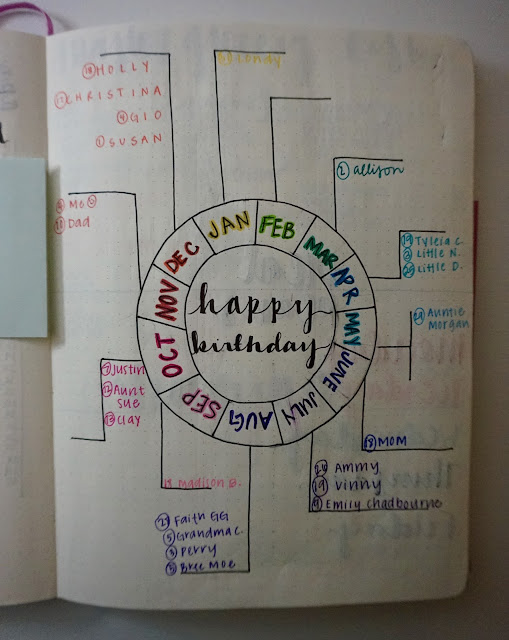 HOLLY
CHRISTINA
④ GIO
① SUSAN
Me
Dad
② allison
⑲ Tyleia C.
② Little N.
Little D.
Auntie
Morgan
JAN
FEB
MAR
APR
MAY
JUNE
JULY
AUG
SEP
OCT
NOV
DEC
happy
birthday
Justin
⑫ Aunt
Sue
⑬ Clay
⑱ MOM
Ammy
⑲ Vinny
⑨ Emily Chadbourne
18 madison B.
Faith GG
⑤ Grandma C.
③ Perry
Bree Moe